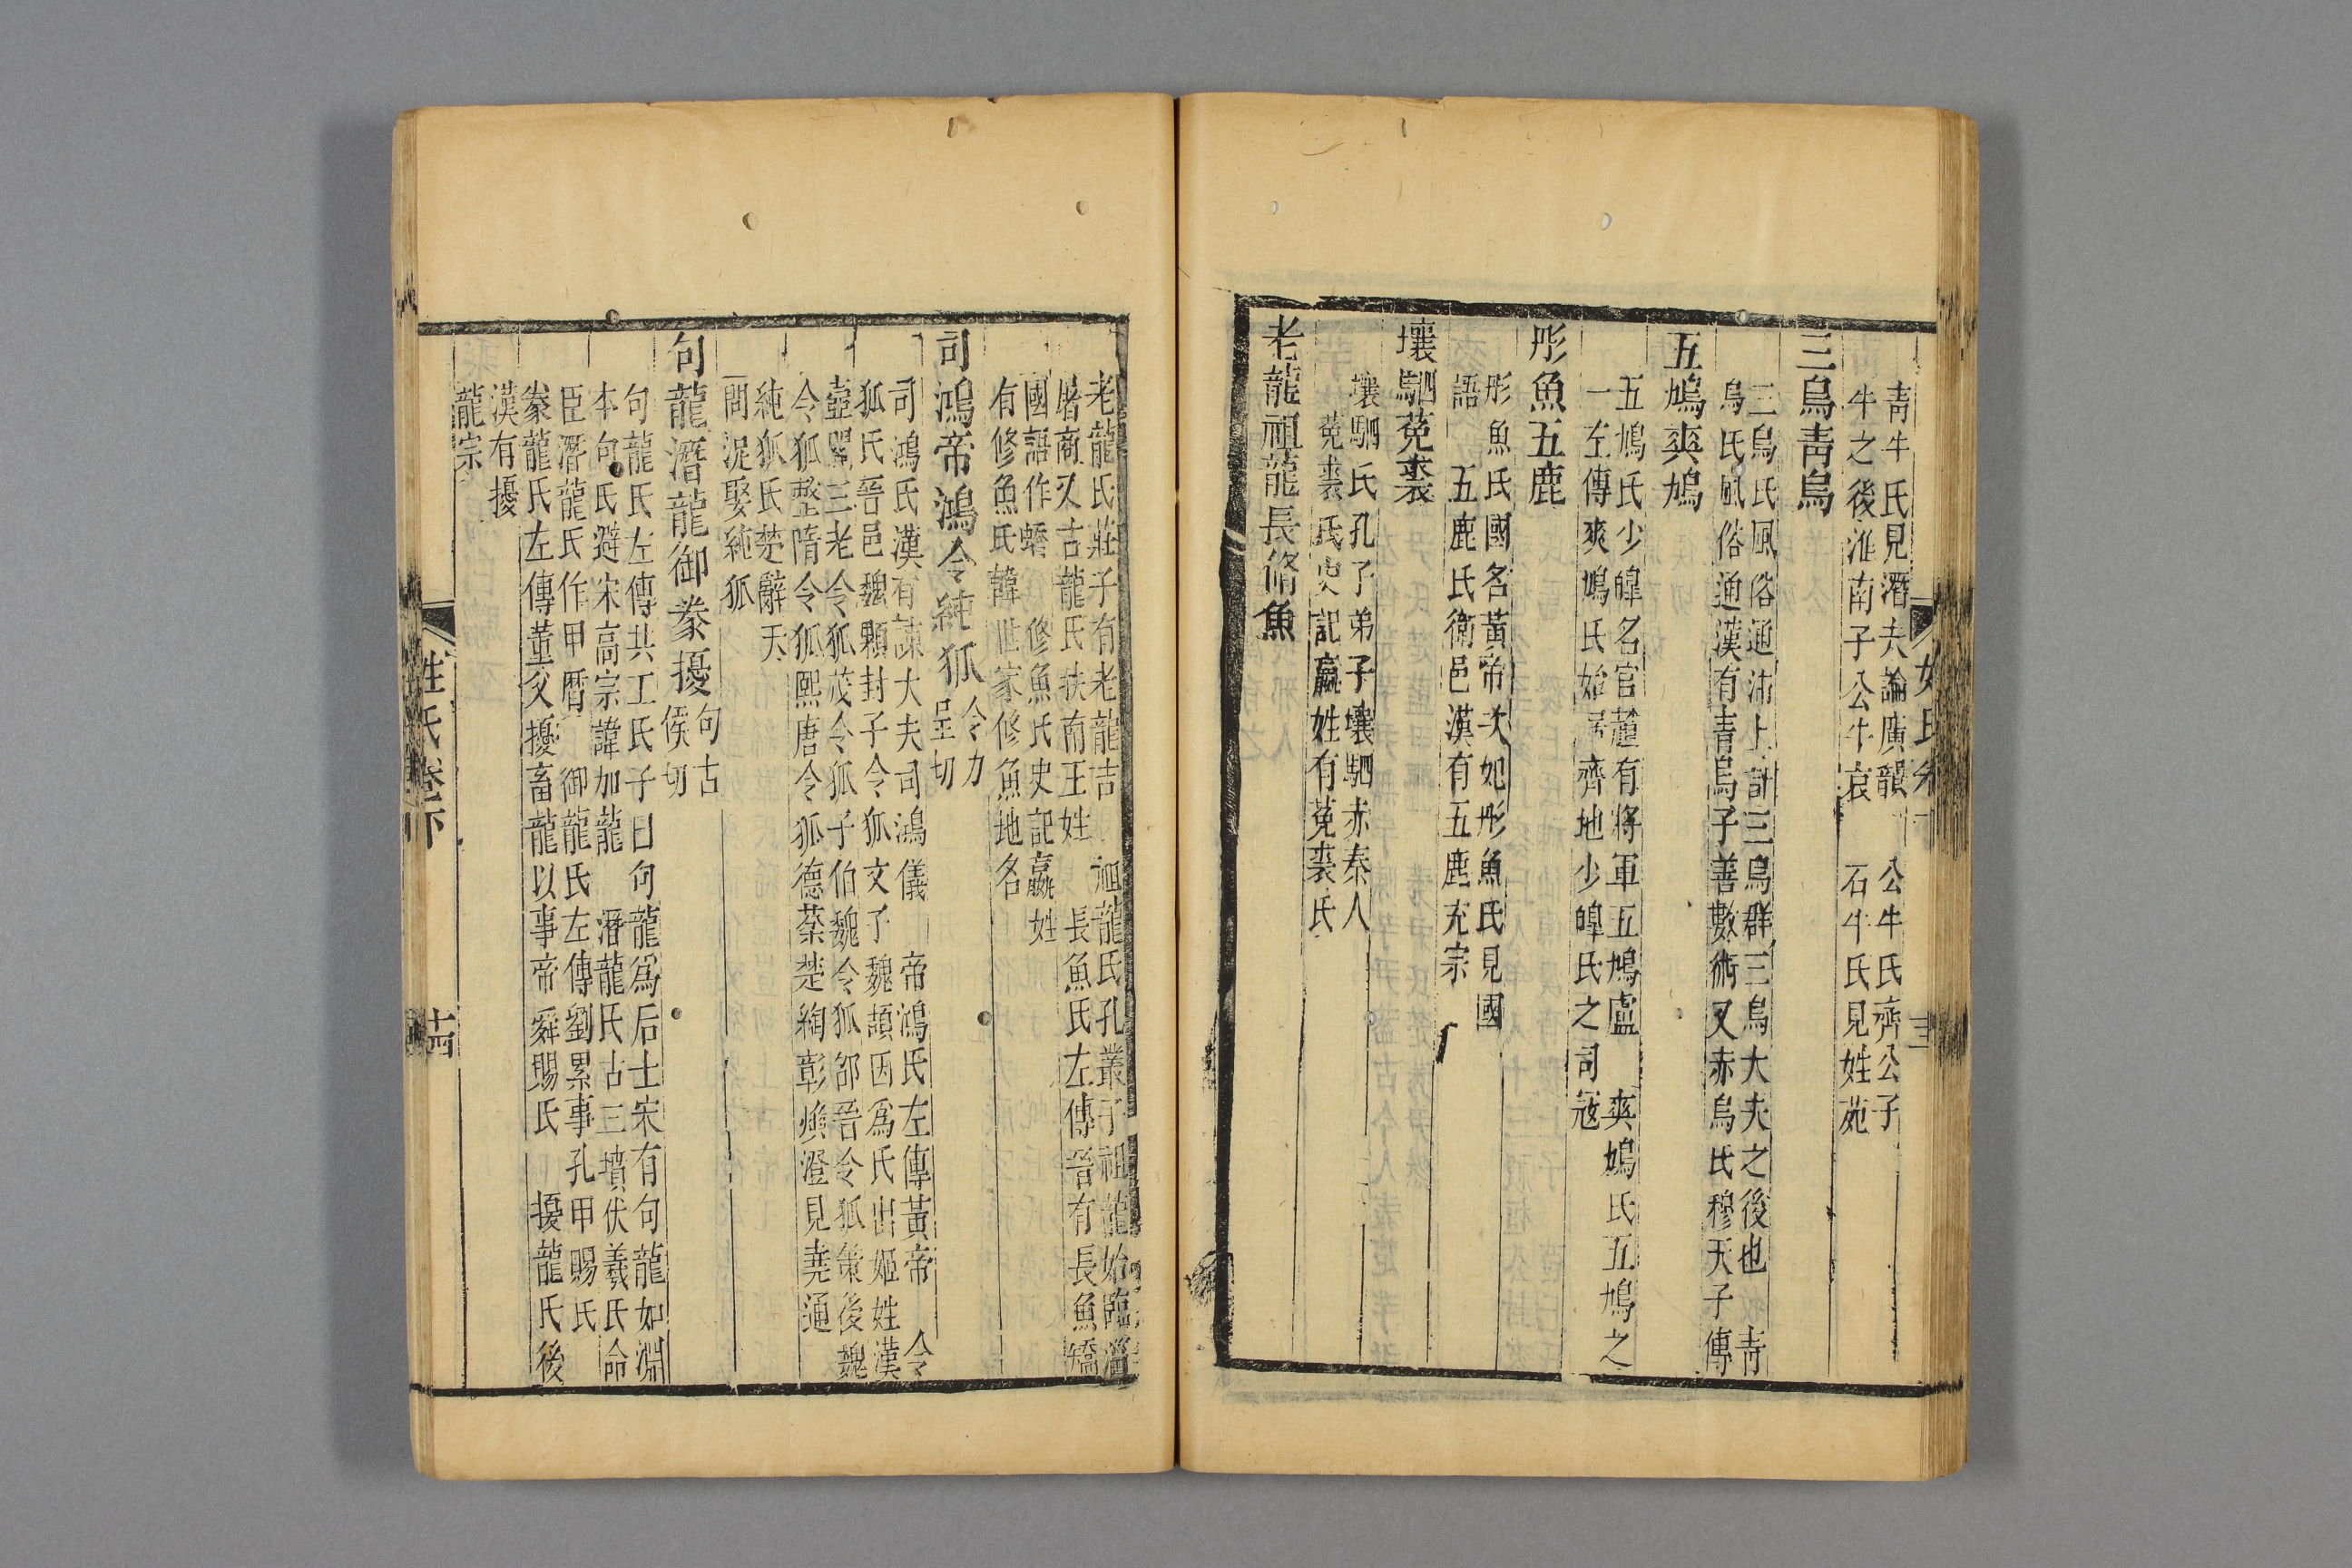 青牛氏見潛夫論廣韻　公牛氏齊公子
牛之後淮南子公牛哀　石牛氏見姓苑
三烏青烏
三烏氏風俗通沛上計三烏群三烏大夫之後也　青
烏氏風俗通漢有青烏子善數術又赤烏氏穆天子傳
五鳩爽鳩
五鳩氏少皥名官趙有將軍五鳩盧　爽鳩氏五鳩之
一左傳爽鳩氏始居齊地少皥氏之司寇
彤魚五鹿
彤魚氏國名黃帝次妃彤魚氏見國
語　五鹿氏衛邑漢有五鹿充宗
壤駟菟裘
壤駟氏孔子弟子壤駟赤秦人
菟裘氏史記嬴姓有菟裘氏
老龍祖龍長脩魚
老龍氏莊子有老龍吉　祖龍氏孔叢子祖龍始臨淄
屠商又古龍氏扶南王姓　長魚氏左傳晉有長魚矯
國語作蟜　修魚氏史記嬴姓
有修魚氏韓世家修魚地名
司鴻帝鴻令純狐令力呈切
司鴻氏漢有諫大夫司鴻儀　帝鴻氏左傳黃帝　令
狐氏晉邑魏顆封子令狐文子魏頡因爲氏出姬姓漢
壺關三老令狐茂令狐子伯魏令狐邵晉令狐策後魏
令狐整隋令狐熙唐令狐德棻楚綯彰煥澄見堯通
純狐氏楚辭天
問浞娶純狐
句龍潛龍御豢擾句古侯切
句龍氏左傳共工氏子曰句龍爲后土宋有句龍如淵
本句氏避宋高宗諱加龍　潛龍氏古三墳伏羲氏命
臣潛龍氏作甲曆　御龍氏左傳劉累事孔甲賜氏
豢龍氏左傳董父擾畜龍以事帝舜賜氏　擾龍氏後
漢有擾
龍宗
姓氏卷下
十四